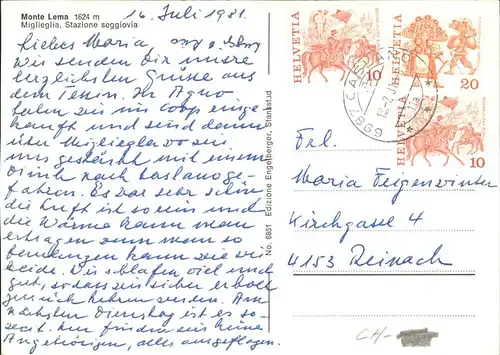 Monte Lema 1624 m
Miglieglia, Stazione seggiovia
16. Juli 1981.
Liebes Maria
wir senden dir unsere
herzlichsten Grüsse aus
dem Tessin. In Agno
haben wir im Coop einge-
kauft und sind dann
über Miglieglia wo wir
uns gestärkt mit einem
Drink nach Lostano ge-
fahren. Es war sehr schön
die Luft ist so rein und
die Wärme kann man
ertragen
kann wir
beide. Wir schlafen viel und
gut, sodass wir sicher erholt
zurück kehren werden. Am
nächsten Dienstag ist es so-
weit. Nur finden wir keine
Angehörigen, alles ausgeflogen.
No. 6851 Edizione Engelberger, Stansstad
HELVETIA 10
HELVETIA 20
HELVETIA 10
6981
Frl.
Maria Feigenwinter
Kirchgasse 4
4153 Reinach
CH-